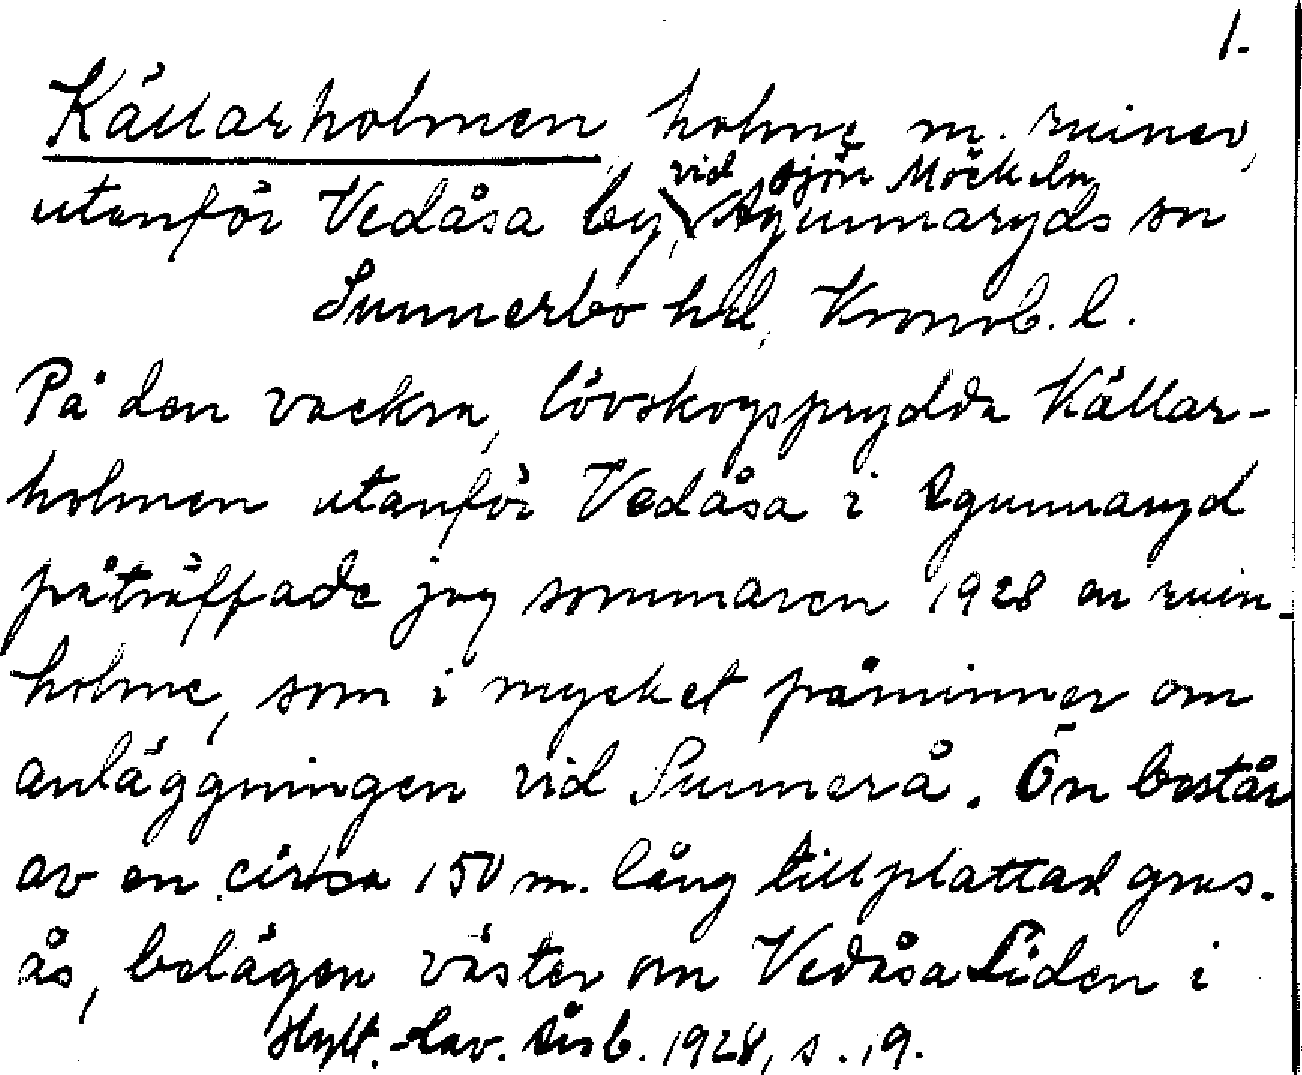 1.
Källarholmen, holme m. ruiner,
vid sjön Möckeln
utanför Vedåsa by, Agunnaryds sn
Sunnerbo hd, Kronob. l.
På den vackra, lövskogsprydda Källar-
holmen utanför Vedåsa i Agunnaryd
påträffade jag sommaren 1928 en ruin-
holme, som i mycket påminner om
anläggningen vid Sunnerå. Ön består
av en cirka 150 m. lång tillplattad grus-
ås, belägen väster om Vedåsa Liden i
Hylt. Cav. Årsb. 1928, s. 19.